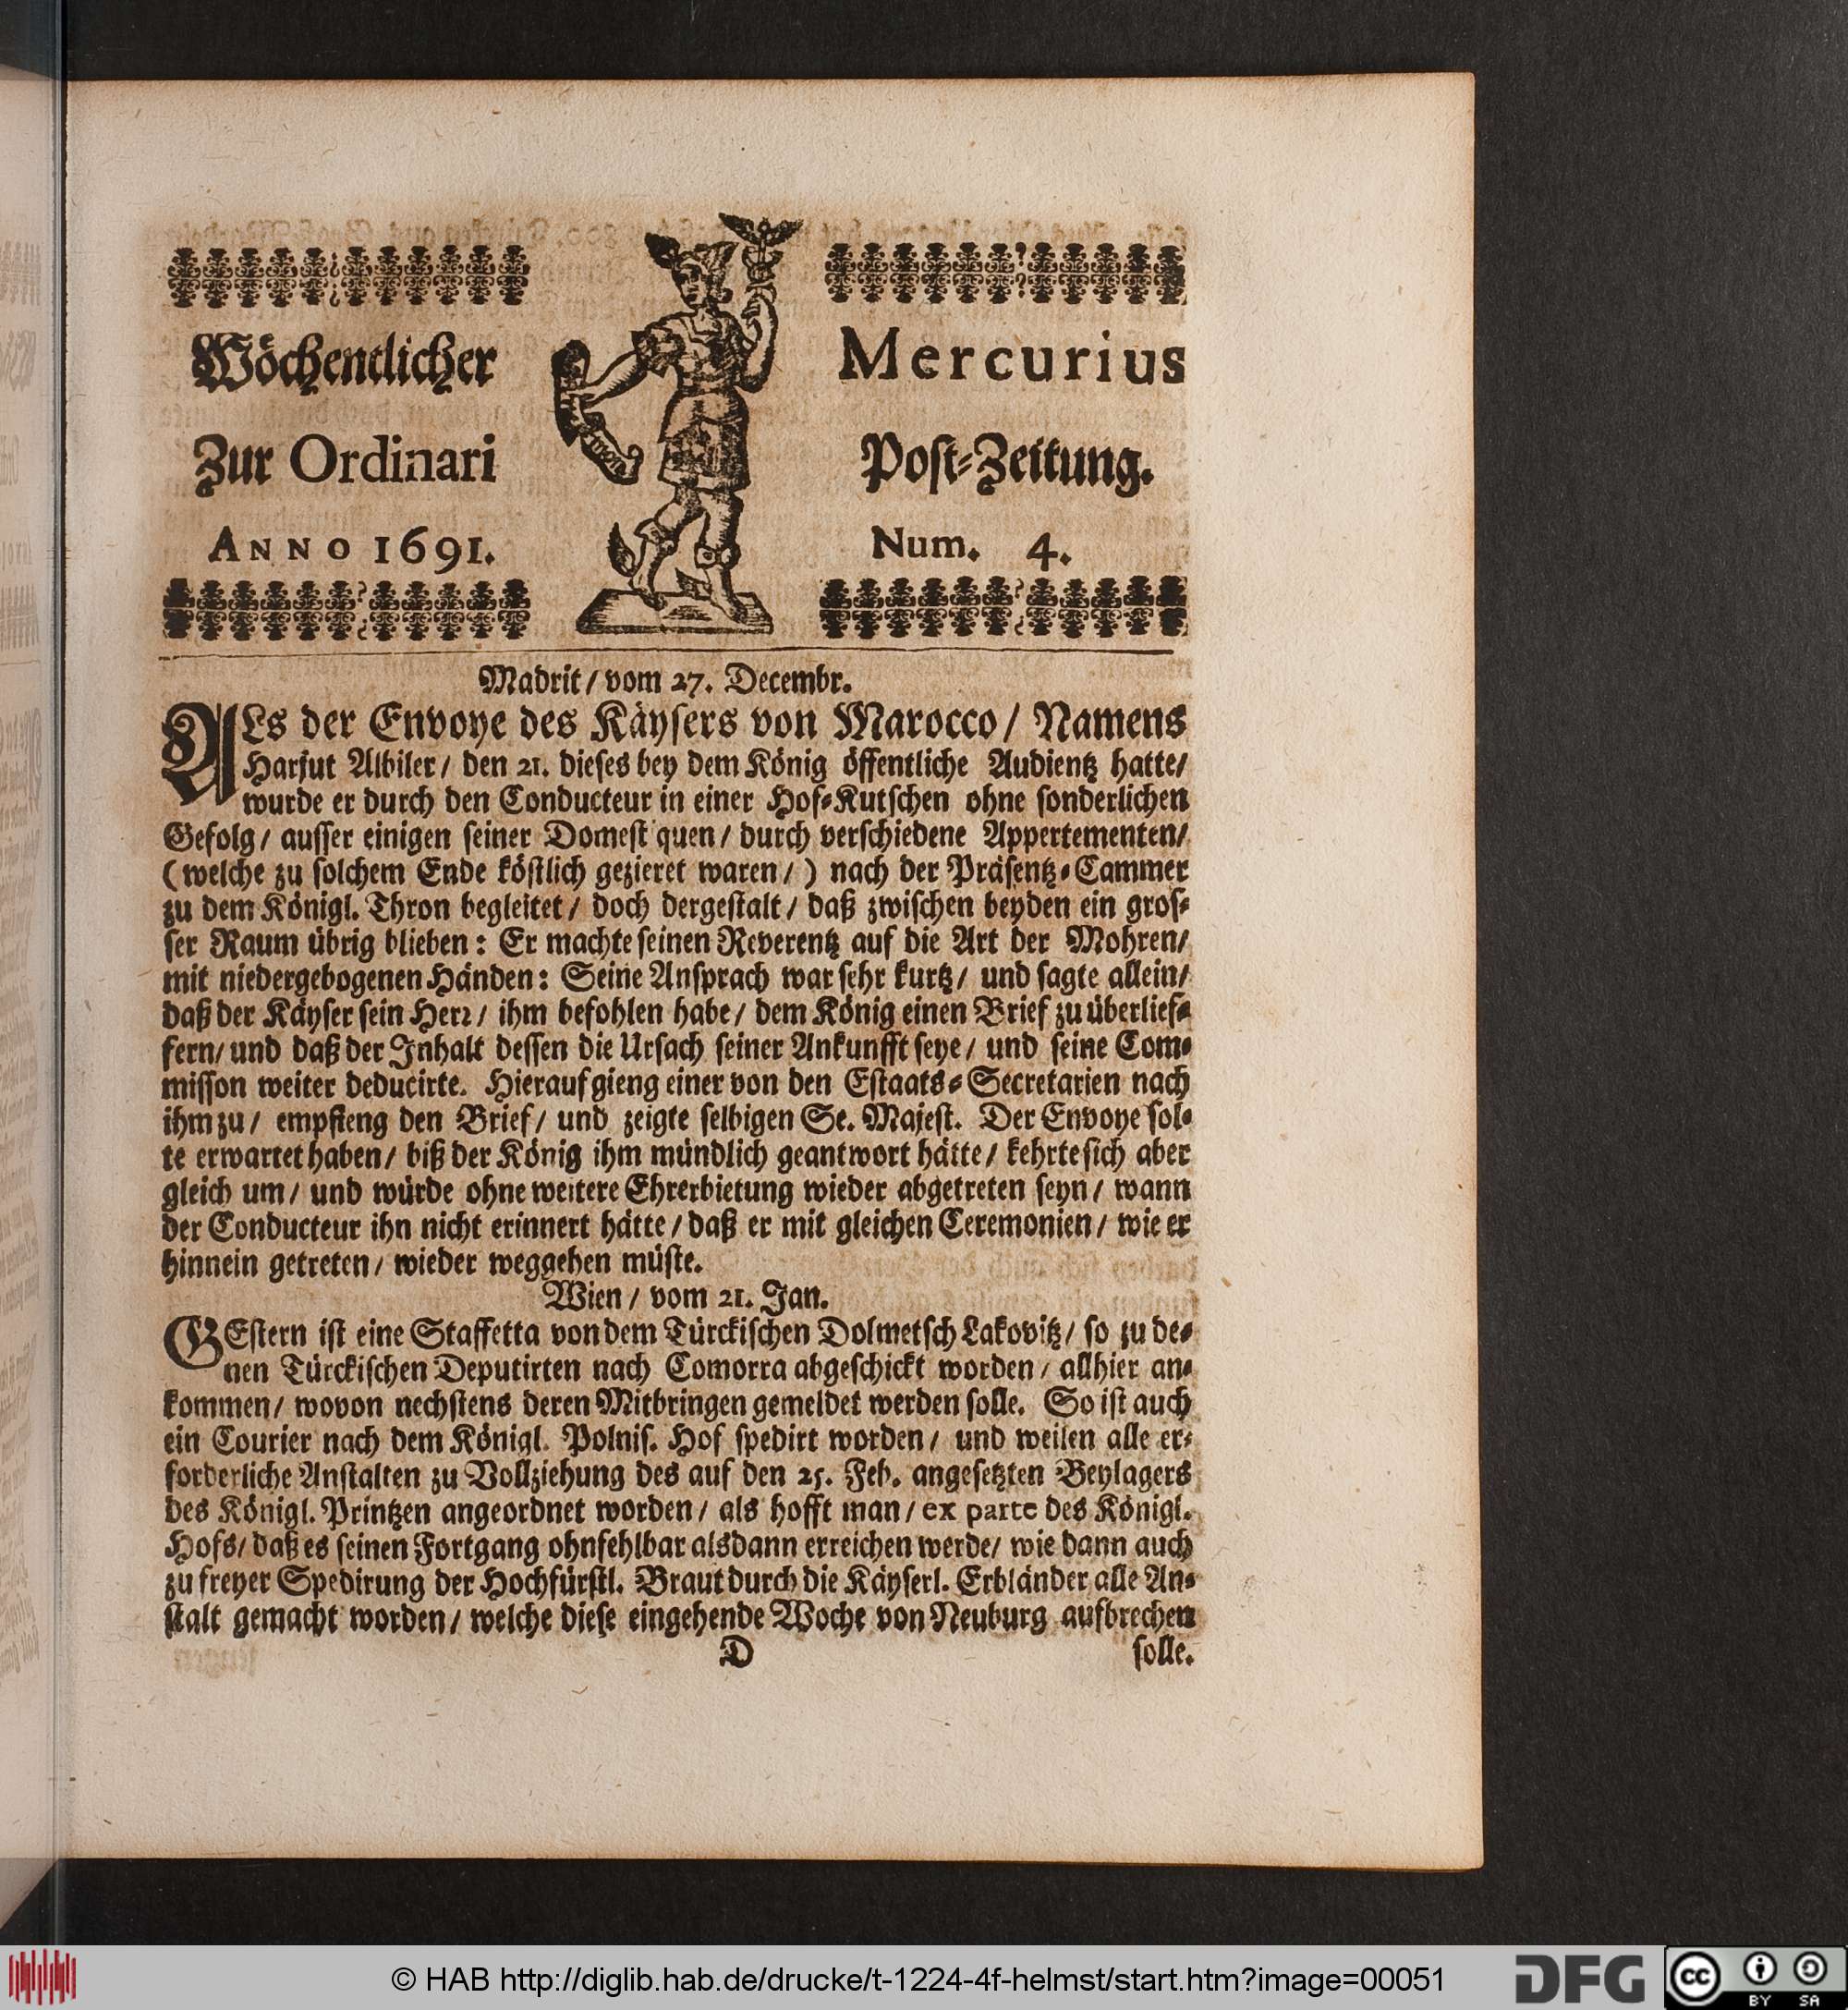 Wöchentlicher Mercurius
Zur Ordinari Post-Zeitung.
ANNO 1691. Num. 4.
Madrit / vom 27. Decembr.
ALs der Envoye des Käysers von Marocco / Namens
Harjut Albiler / den 21. dieses bey dem König öffentliche Audientz hatte /
wurde er durch den Conducteur in einer Hof-Kutschen ohne sonderlichen
Gefolg / ausser einigen seiner Domest quen / durch verschiedene Appertementen /
( welche zu solchem Ende köstlich gezieret waren / ) nach der Präsentz-Cammer
zu dem Königl. Thron begleitet / doch dergestalt / daß zwischen beyden ein gros-
ser Raum übrig blieben : Er machte seinen Reverentz auf die Art der Mohren /
mit niedergebogenen Händen : Seine Ansprach war sehr kurtz / und sagte allein /
daß der Käyser sein Herꝛ / ihm befohlen habe / dem König einen Brief zu überlief-
fern / und daß der Inhalt dessen die Ursach seiner Ankunfft seye / und seine Com-
misson weiter deducirte. Hierauf gieng einer von den Estaats-Secretarien nach
ihm zu / empfieng den Brief / und zeigte selbigen Se. Majest. Der Envoye sol-
te erwartet haben / biß der König ihm mündlich geantwort hätte / kehrte sich aber
gleich um / und würde ohne weitere Ehrerbietung wieder abgetreten seyn / wann
der Conducteur ihn nicht erinnert hätte / daß er mit gleichen Ceremonien / wie er
hinnein getreten / wieder weggehen müste.
Wien / vom 21. Jan.
GEstern ist eine Staffetta von dem Türckischen Dolmetsch Lakovitz / so zu de-
nen Türckischen Deputirten nach Comorra abgeschickt worden / allhier an-
kommen / wovon nechstens deren Mitbringen gemeldet werden solle. So ist auch
ein Courier nach dem Königl. Polnis. Hof spedirt worden / und weilen alle er-
forderliche Anstalten zu Vollziehung des auf den 25. Feb. angesetzten Beylagers
des Königl. Printzen angeordnet worden / als hofft man / ex parte des Königl.
Hofs / daß es seinen Fortgang ohnfehlbar alsdann erreichen werde / wie dann auch
zu freyer Spedirung der Hochfürstl. Braut durch die Käyserl. Erbländer alle An-
stalt gemacht worden / welche diese eingehende Woche von Neuburg aufbrechen
D solle.
© HAB http://diglib.hab.de/drucke/t-1224-4f-helmst/start.htm?image=00051
DFG
cc BY SA